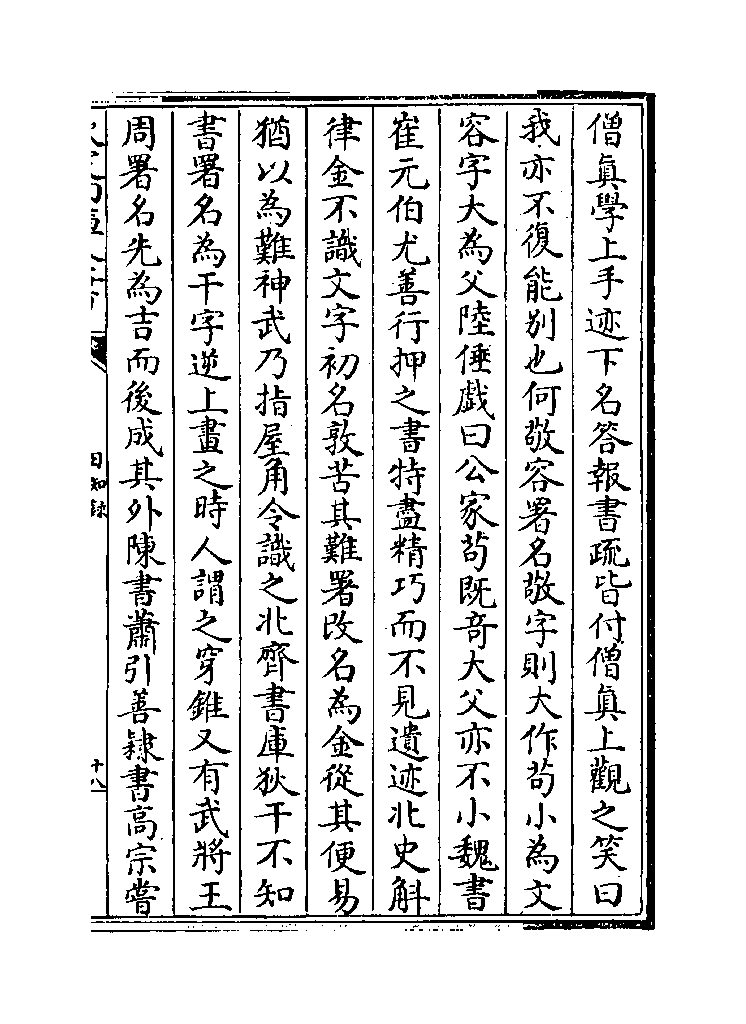 僧真學上手迹下名答報書疏皆付僧真上觀之笑曰
我亦不復能别也何敬容署名敬字則大作茍小為文
容字大為父陸倕戲曰公家茍既竒大父亦不小魏書
崔元伯尤善行押之書特盡精巧而不見遺迹北史斛
律金不識文字初名敦苦其難署改名為金從其便易
猶以為難神武乃指屋角令識之北齊書庫狄干不知
書署名為干字逆上畫之時人謂之穿錐又有武將王
周署名先為吉而後成其外陳書蕭引善隸書高宗嘗
日知録
十八